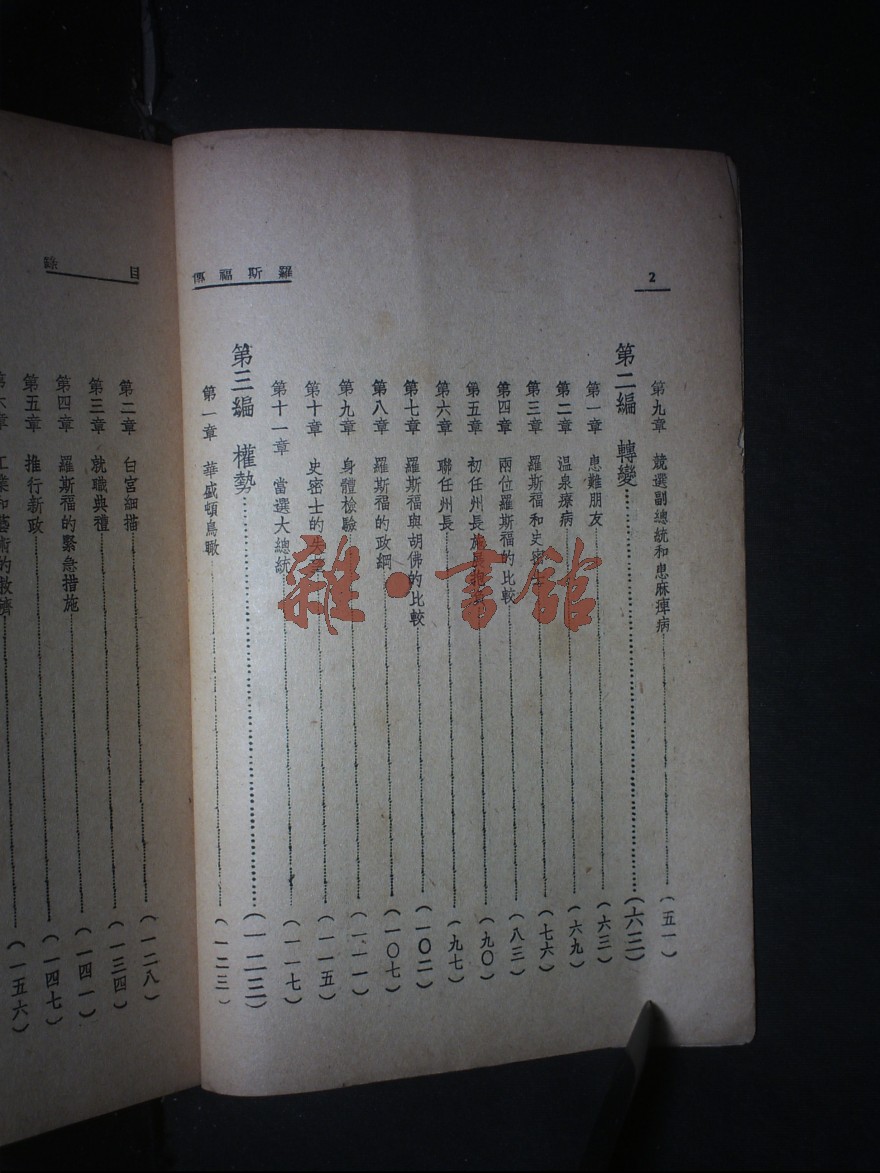 2
羅斯福傳
第九章 競選副總統和患麻痺病(五一)
第二編 轉變(六三)
第一章 患難朋友(六三)
第二章 溫泉療病(六九)
第三章 羅斯福和史密士(七六)
第四章 兩位羅斯福的比較(八三)
第五章 初任州長施展(九〇)
第六章 聯任州長(九七)
第七章 羅斯福與胡佛的比較(一〇二)
第八章 羅斯福的政綱(一〇七)
第九章 身體檢驗(一一一)
第十章 史密士的失(一一五)
第十一章 當選大總統(一一七)
第三編 權勢(一二三)
第一章 華盛頓鳥瞰(一二三)
目錄
第二章 白宮細描(一二八)
第三章 就職典禮(一三四)
第四章 羅斯福的緊急措施(一四一)
第五章 推行新政(一四七)
第六章 工業和藝術的救濟(一五六)
雜·書館